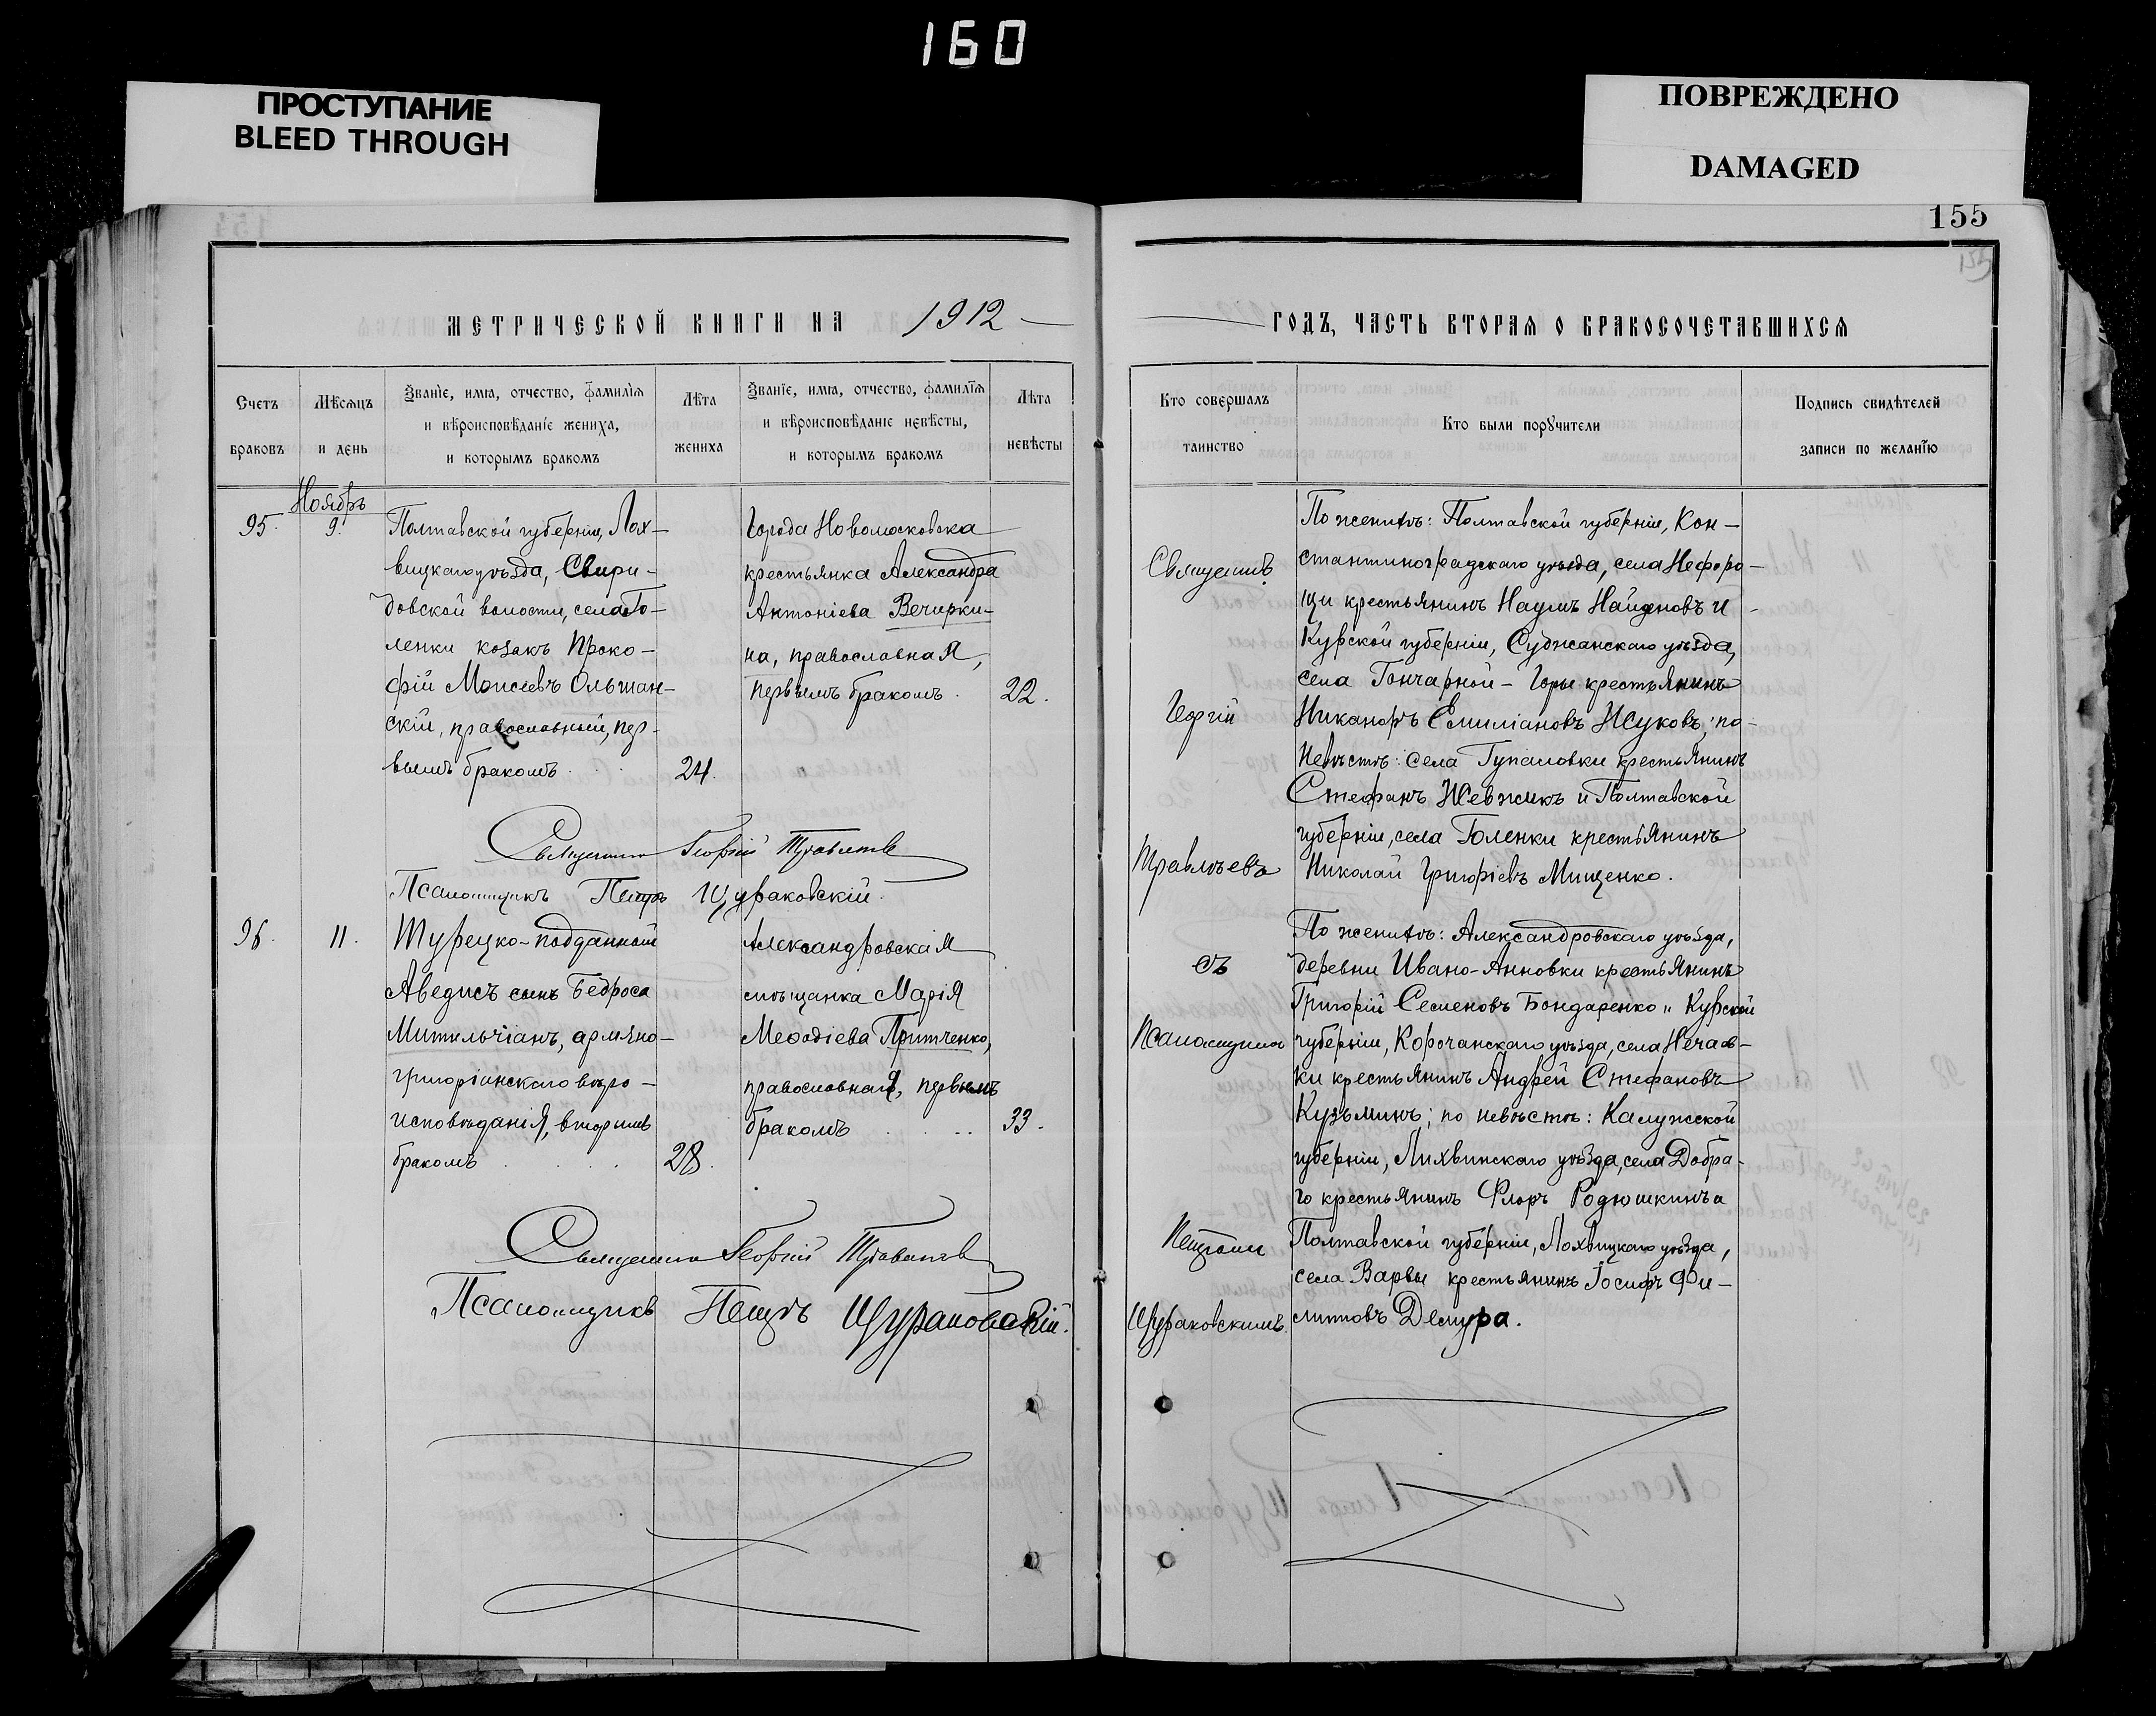 160
ПРОСТУПАНИЕ
BLEED THROUGH
ПОВРЕЖДЕНО
DAMAGED
155
155
МЕТРИЧЕСКОЙ КНИГИ НА 1912
ГОДЪ, ЧАСТЬ ВТОРАЯ О БРАКОСОЧЕТАВШИХСЯ
Счетъ
браковъ
Мѣсяцъ
и день
Званіе, имя, отчество, фамилія
и вѣроисповѣданіе жениха,
и которымъ бракомъ
Лѣта
жениха
Званіе, имя, отчество, фамилія
и вѣроисповѣданіе невѣсты,
и которымъ бракомъ
Лѣта
невѣсты
Кто совершалъ
таинство
Кто были поручители
Подпись свидѣтелей
записи по желанію
Ноябрь
95.
9.
Полтавской губерніи, Лох-
вицкаго уѣзда, Свири-
довской волости, села Го-
ленки козакъ Проко-
фій Моисеевъ Ольшан-
скій, православный, пер-
вымъ бракомъ
24.
Города Новомосковска
крестьянка Александра
Антоніева Вечирки-
на, православная,
первымъ бракомъ.
22.
Священникъ Георгій
Псаломщикъ Петръ Щураковскій.
96.
11.
Турецко-подданный
Аведисъ сынъ Бедроса
Митильчіанъ, армяно-
григоріанскаго вѣро-
исповѣданія, вторымъ
бракомъ
28.
Александровская
мѣщанка Марія
Меѳодіева Притченко,
православная, первымъ
бракомъ
33.
Священникъ Георгій
Псаломщикъ Петръ Щураковскій.
Священникъ
Георгій
Травлѣевъ
съ
Псаломщикомъ
Петромъ
Щураковскимъ.
По женихѣ: Полтавской губерніи, Кон-
стантиноградскаго уѣзда, села Нефоро-
щи крестьянинъ Наумъ Найденовъ и
Курской губерніи, Суджанскаго уѣзда,
села Гончарной-Горы крестьянинъ
Никаноръ Емиліановъ Жуковъ; по
невѣстѣ: села Гупаловки крестьянинъ
Стефанъ Жевжикъ и Полтавской
губерніи, села Голенки крестьянинъ
Николай Григоріевъ Мищенко.
По женихѣ: Александровскаго уѣзда,
деревни Ивано-Анновки крестьянинъ
Григорій Семеновъ Бондаренко и Курской
губерніи, Корочанскаго уѣзда, села Нечаев-
ки крестьянинъ Андрей Стефановъ
Кузьминъ; по невѣстѣ: Калужской
губерніи, Лихвинскаго уѣзда, села Добра-
го крестьянинъ Флоръ Родюшкинъ и
Полтавской губерніи, Лохвицкаго уѣзда,
села Варвы крестьянинъ Іосифъ Фи-
липповъ Демура.